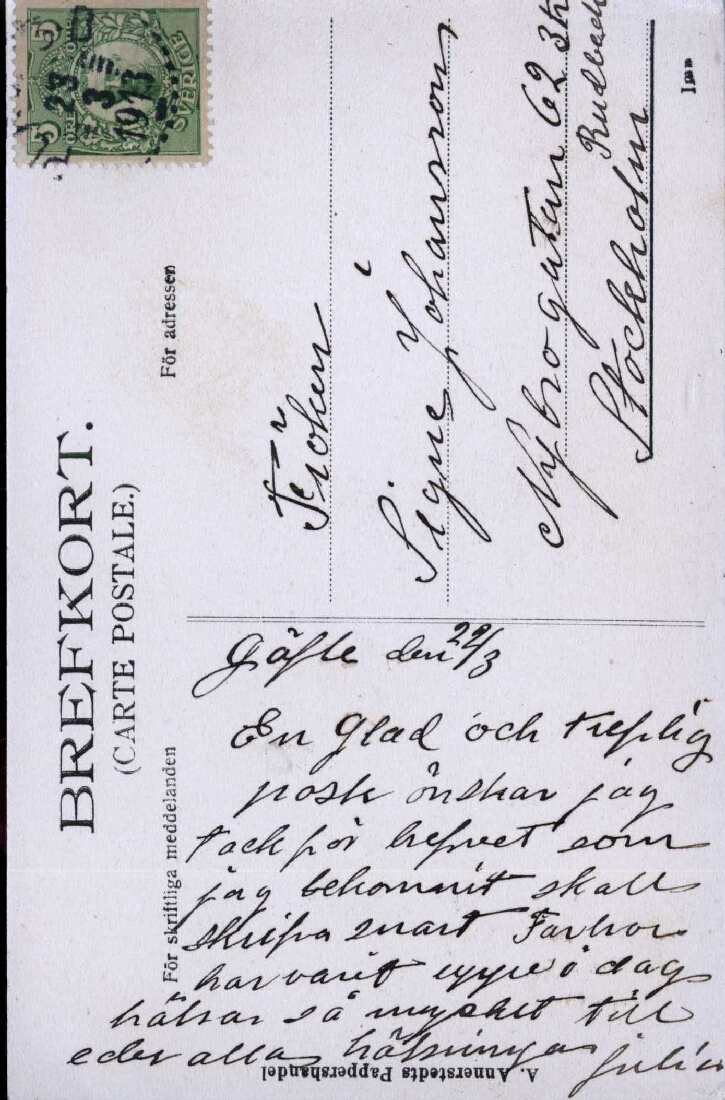 BREFKORT.
(CARTE POSTALE.)
För skriftliga meddelanden
För adressen
5 ÖRE 5
SVERIGE
23 3 1913
Fröken
Signe Johansson
Nybrogatan 62 3
Stockholm
Gäfle den 22/3
En Glad och treflig
påsk önskar jag
tack för brefvet som
jag bekommit skall
skrifva snart Farbror
har varit uppe i dag
hälsar så mycket till
eder alla hälsningar
A. Annerstedts Pappershandel